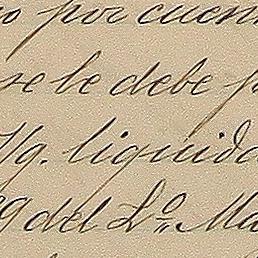 por cuen
se le debe p
/g. liquida
9 del L.º Ma